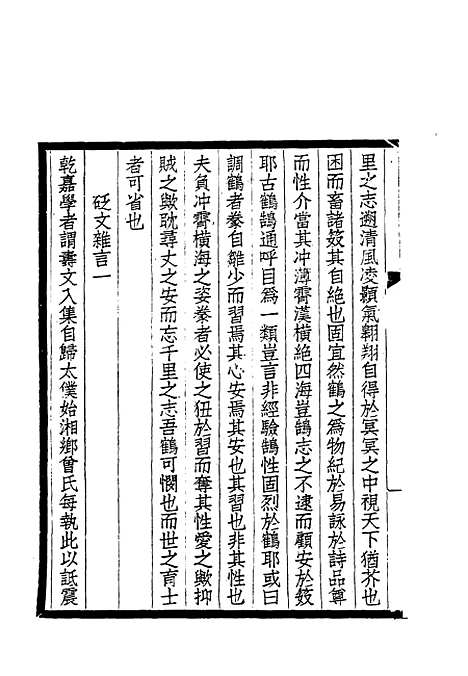 里之志遡清風凌顥氣翱翔自得於冥冥之中視天下猶芥也
困而畜諸笯其自絶也固宜然鶴之爲物紀於易詠於詩品尊
而性介當其冲薄霄漢橫絶四海豈鵠志之不逮而顧安於笯
耶古鶴鵠通呼目爲一類豈言非經驗鵠性固烈於鶴耶或曰
調鶴者豢自雛少而習焉其心安焉其安也其習也非其性也
夫負冲霄橫海之姿豢者必使之狃於習而奪其性愛之歟抑
賊之歟耽尋丈之安而忘千里之志吾鶴可憫也而世之育士
者可省也
砭文雜言一
乾嘉學者謂壽文入集自歸太僕始湘鄉曾氏每執此以詆震